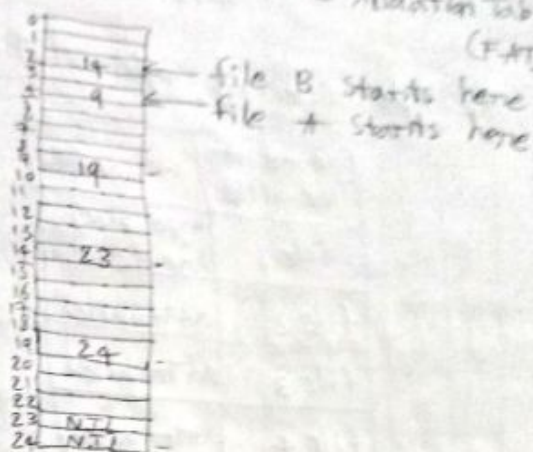 (FAT
0
1
2
3 14 file B starts here
4 9 file A starts here
8
9 19
10
11
12
13
14 23
15
16
17
18
19 24
20
21
22
23 NIL
24 NIL